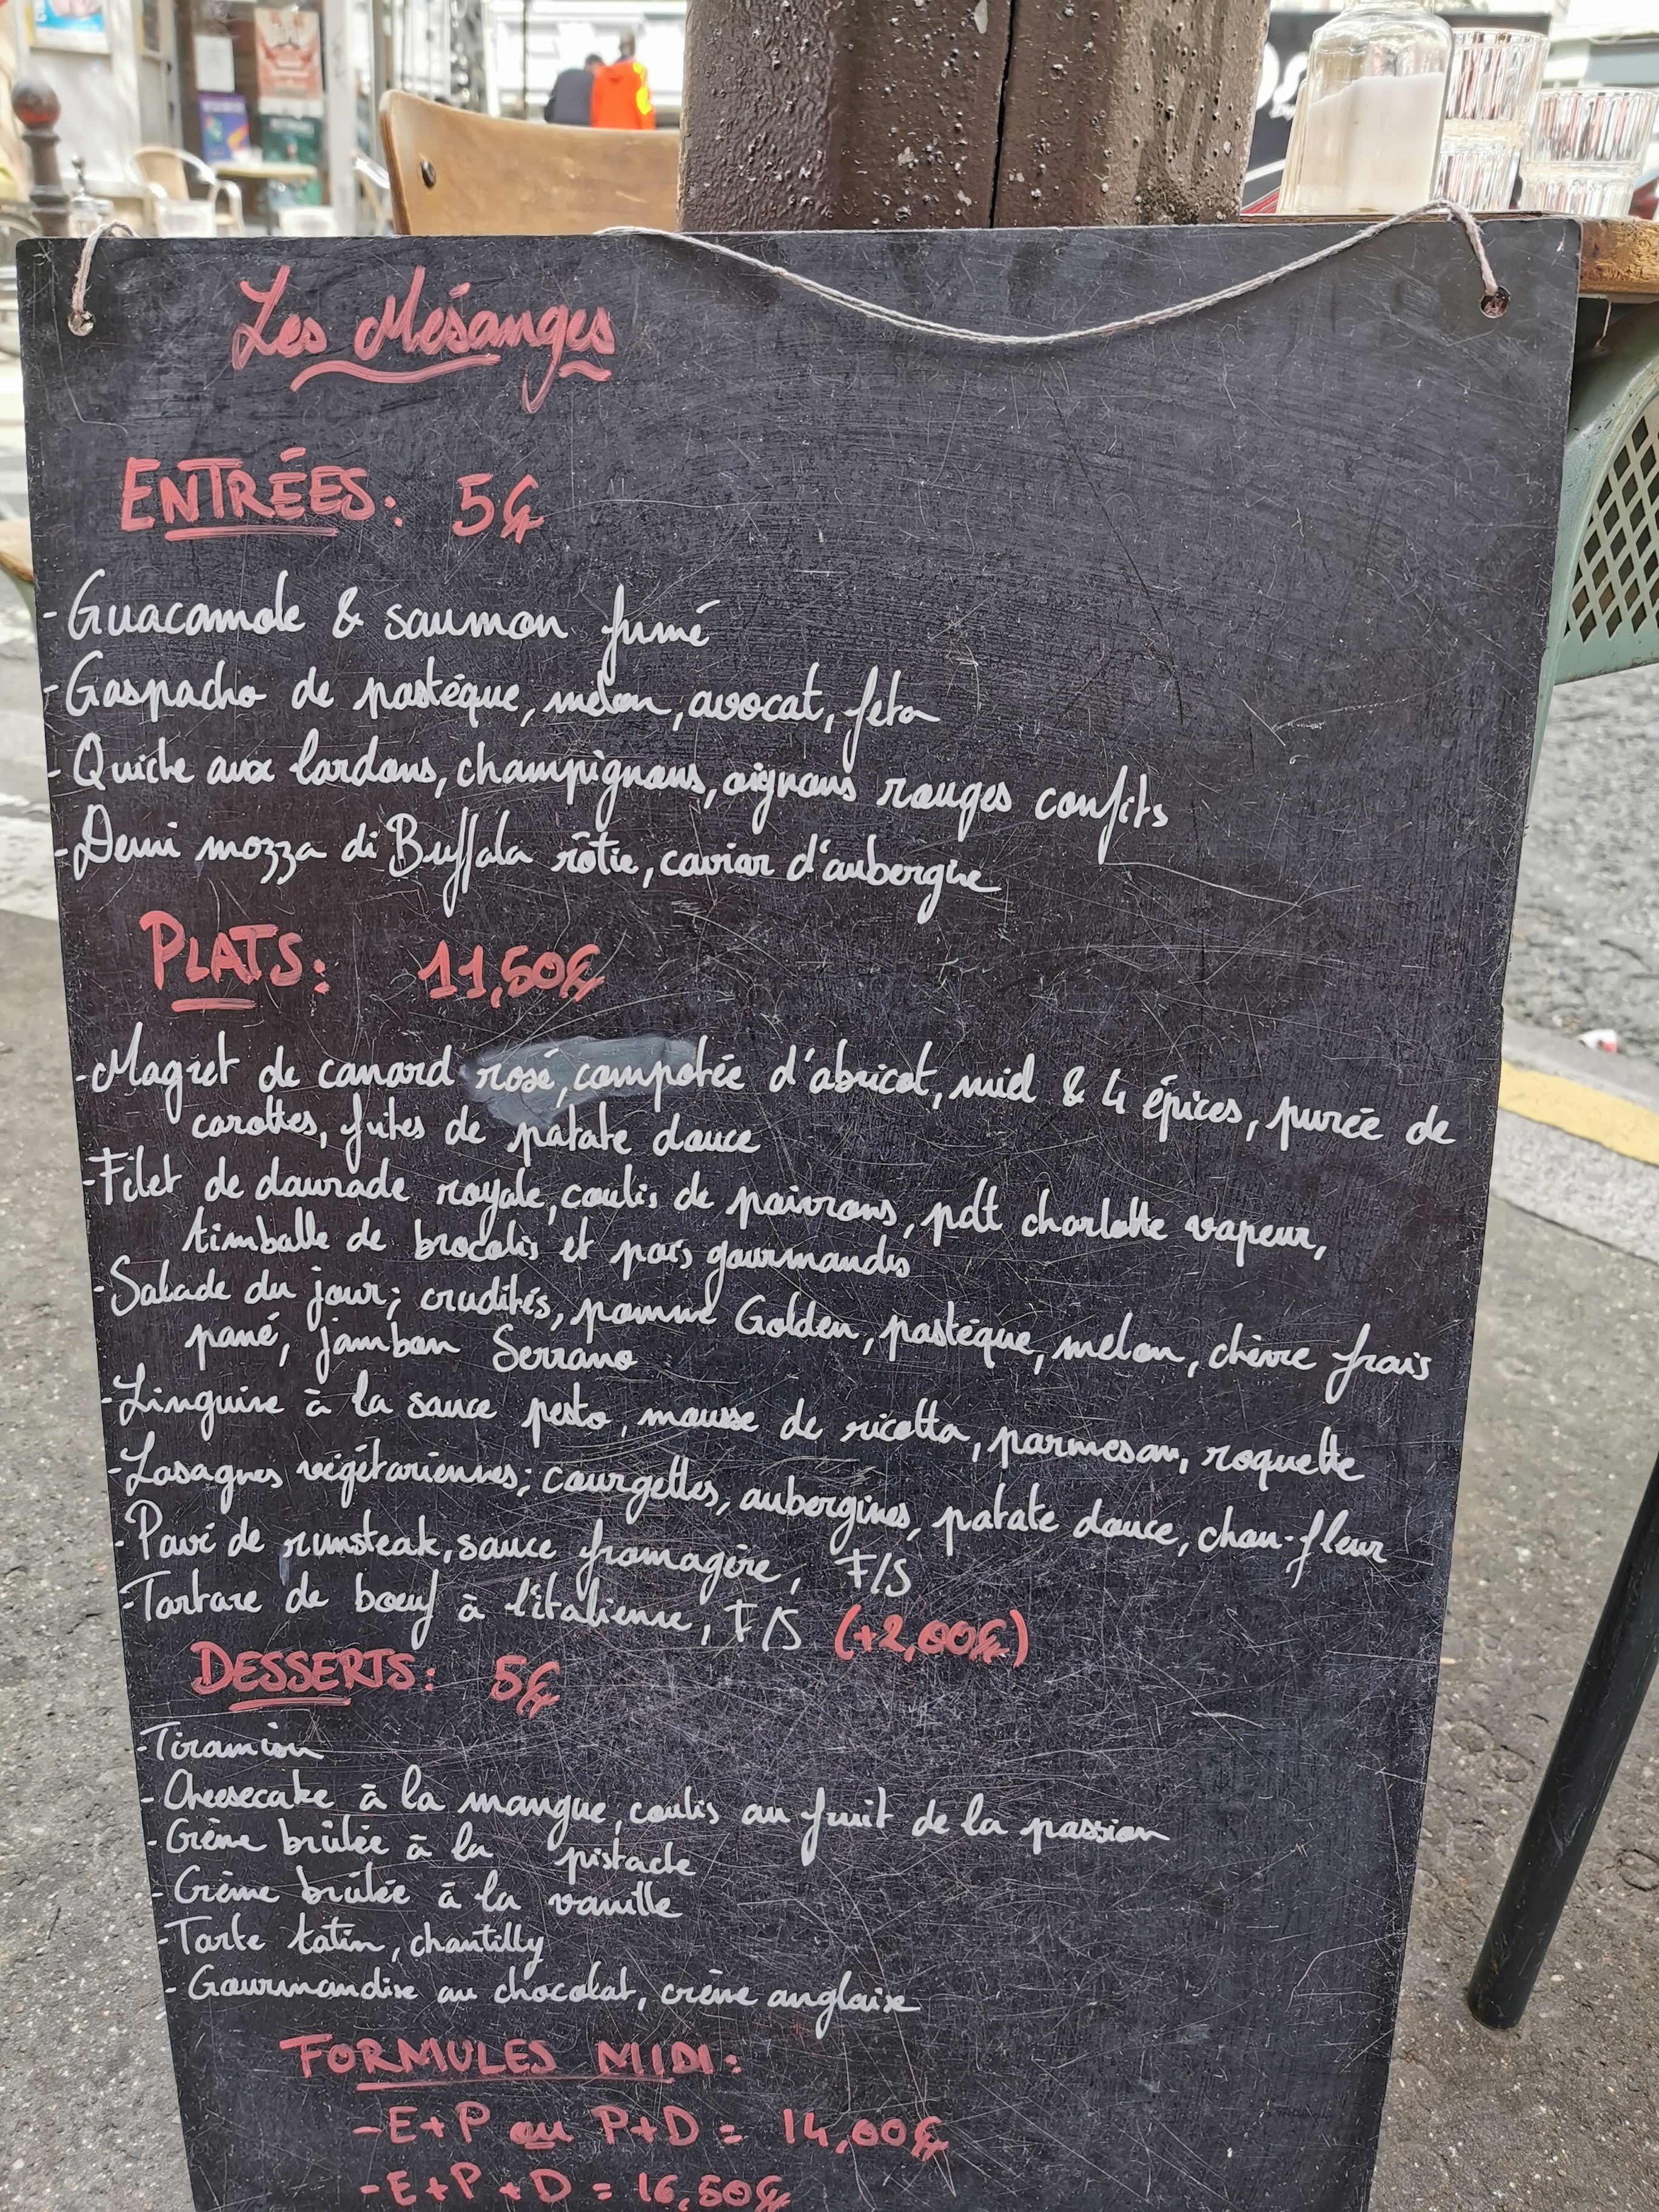 Les Mésanges
ENTRÉES: 5€
-Guacamole & saumon fumé
-Gaspacho de pastèque, melon, avocat, feta
-Quiche aux lardons, champignons, oignons rouges confits
-Demi mozza di Buffala rôtie, caviar d'aubergine
PLATS: 11,50€
-Magret de canard rosé, compotée d'abricot, miel & 4 épices, purée de
carottes, frites de patate douce
-Filet de daurade royale, coulis de poivrons, pdt charlotte vapeur,
timballe de brocolis et pois gourmands
-Salade du jour; crudités, pomme Golden, pastèque, melon, chèvre frais
pané, jambon Serrano
-Linguine à la sauce pesto, mousse de ricotta, parmesan, roquette
-Lasagnes végétariennes; courgettes, aubergines, patate douce, chou-fleur
-Pavé de rumsteak, sauce fromagère, F/S
-Tartare de bœuf à l'italienne, F/S (+2,00€)
DESSERTS: 5€
-Tiramisu
-Cheesecake à la mangue, coulis au fruit de la passion
-Crème brûlée à la pistache
-Crème brûlée à la vanille
-Tarte tatin, chantilly
-Gourmandise au chocolat, crème anglaise
FORMULES MIDI:
-E+P ou P+D = 14,00€
-E+P+D = 16,50€